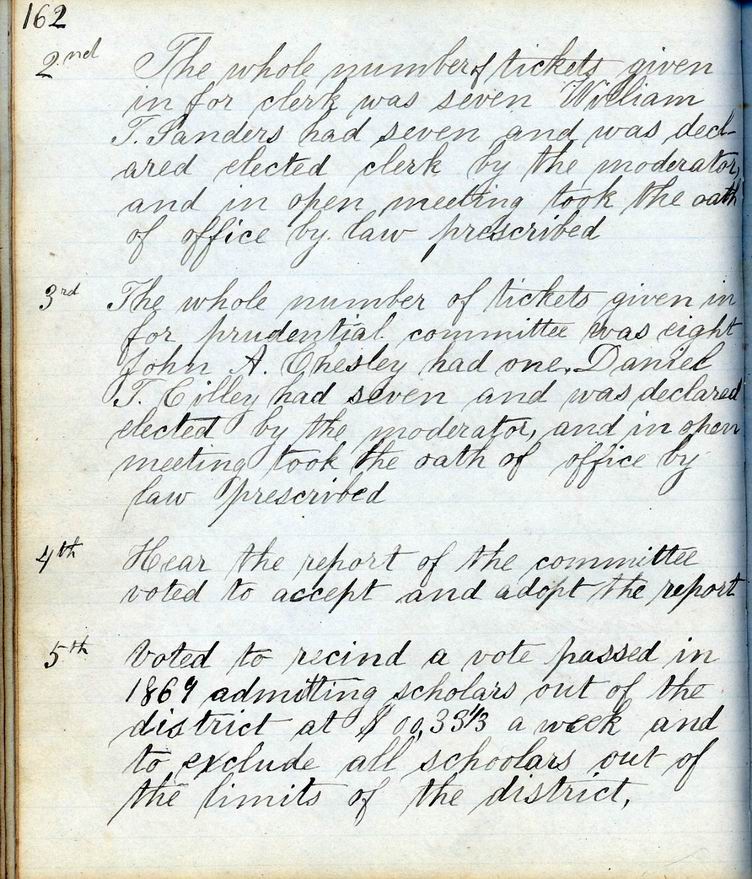 162
2nd The whole number of tickets given
in for clerk was seven William
T. Sanders had seven and was decl-
ared elected clerk by the moderator,
and in open meeting took the oath
of office by law prescribed
3rd The whole number of tickets given in
for prudential committee was eight
John A. Chesley had one. Daniel
T. Cilley had seven and was declared
elected by the moderator, and in open
meeting took the oath of office by
law prescribed
4th Hear the report of the committee
voted to accept and adopt the report
5th Voted to recind a vote passed in
1869 admitting scholars out of the
district at $00,33⅓ a week and
to exclude all schoolars out of
the limits of the district.